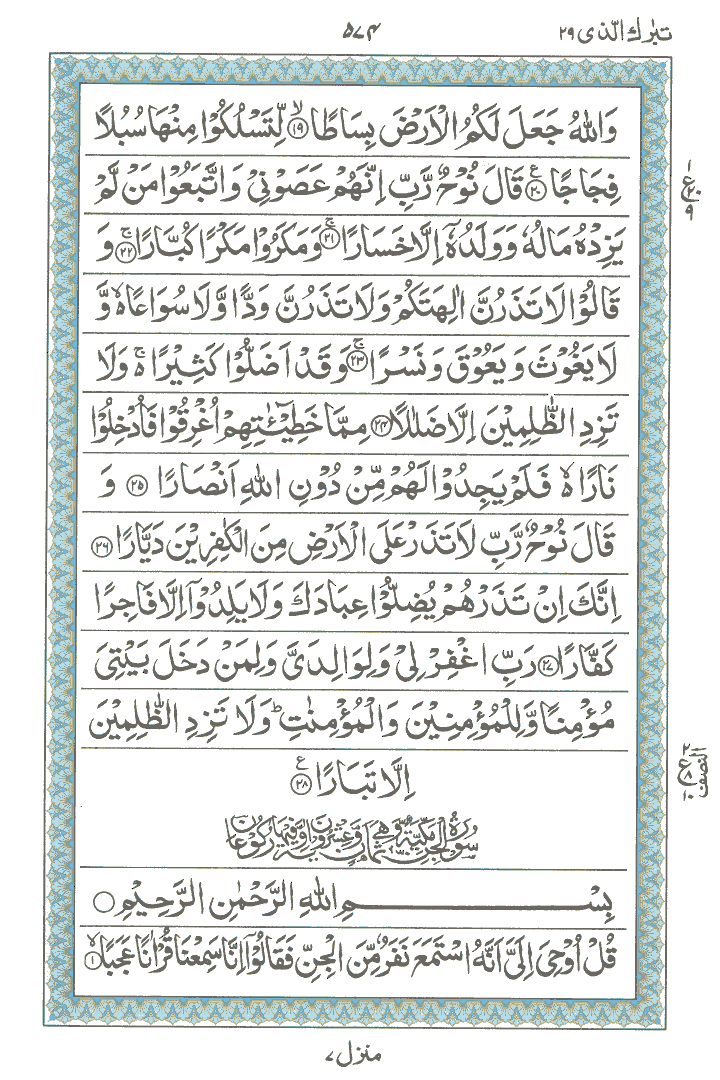 تبٰرك الّذی ۲۹
۵۷۴
وَاللّٰهُ جَعَلَ لَكُمُ الْاَرْضَ بِسَاطًا ۙ﴿۱۹﴾ لِّتَسْلُكُوْا مِنْهَا سُبُلًا
فِجَاجًا ﴿۲۰﴾ؑ قَالَ نُوْحٌ رَّبِّ اِنَّهُمْ عَصَوْنِیْ وَ اتَّبَعُوْا مَنْ لَّمْ
یَزِدْهُ مَالُهٗ وَ وَلَدُهٗۤ اِلَّا خَسَارًا ۚ﴿۲۱﴾ وَ مَكَرُوْا مَكْرًا كُبَّارًا ۚ﴿۲۲﴾ وَ
قَالُوْا لَا تَذَرُنَّ اٰلِهَتَكُمْ وَ لَا تَذَرُنَّ وَدًّا وَّ لَا سُوَاعًا ۙ۬ وَّ
لَا یَغُوْثَ وَ یَعُوْقَ وَ نَسْرًا ۚ﴿۲۳﴾ وَ قَدْ اَضَلُّوْا كَثِیْرًا ۚ۬ وَ لَا
تَزِدِ الظّٰلِمِیْنَ اِلَّا ضَلٰلًا ﴿۲۴﴾ مِمَّا خَطِیْٓـٰٔتِهِمْ اُغْرِقُوْا فَاُدْخِلُوْا
نَارًا ۙ۬ فَلَمْ یَجِدُوْا لَهُمْ مِّنْ دُوْنِ اللّٰهِ اَنْصَارًا ﴿۲۵﴾ وَ
قَالَ نُوْحٌ رَّبِّ لَا تَذَرْ عَلَی الْاَرْضِ مِنَ الْكٰفِرِیْنَ دَیَّارًا ﴿۲۶﴾
اِنَّكَ اِنْ تَذَرْهُمْ یُضِلُّوْا عِبَادَكَ وَ لَا یَلِدُوْۤا اِلَّا فَاجِرًا
كَفَّارًا ﴿۲۷﴾ رَبِّ اغْفِرْ لِیْ وَ لِوَالِدَیَّ وَ لِمَنْ دَخَلَ بَیْتِیَ
مُؤْمِنًا وَّ لِلْمُؤْمِنِیْنَ وَ الْمُؤْمِنٰتِ ؕ وَ لَا تَزِدِ الظّٰلِمِیْنَ
اِلَّا تَبَارًا ﴿۲۸﴾ؑ
سُوْرَةُ الْجِنِّ مَكِّیَّةٌ وَّهِیَ ثَمَانٌ وَّعِشْرُوْنَ اٰیَةً وَّفِیْهَا رُكُوْعَانِ
بِسْمِ اللّٰهِ الرَّحْمٰنِ الرَّحِیْمِ ○
قُلْ اُوْحِیَ اِلَیَّ اَنَّهُ اسْتَمَعَ نَفَرٌ مِّنَ الْجِنِّ فَقَالُوْۤا اِنَّا سَمِعْنَا قُرْاٰنًا عَجَبًا ۙ﴿۱﴾
۱
ع
۲۰
۹
۲
ع
۸
۱۰
النصف
منزل ۷